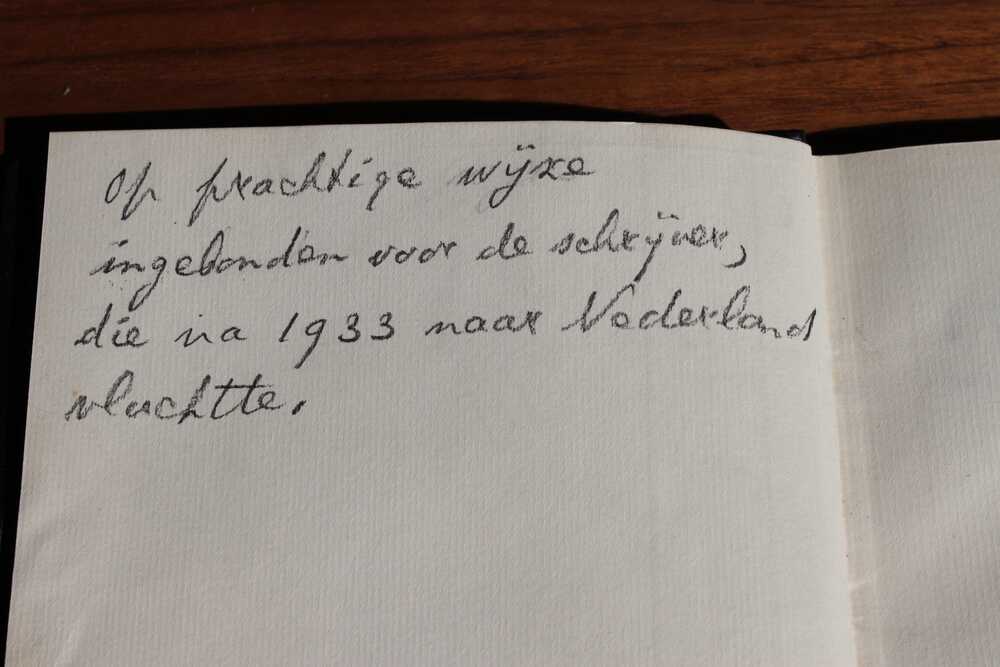 Op prachtige wijze
ingebonden voor de schrijver,
die na 1933 naar Nederland
vluchtte.